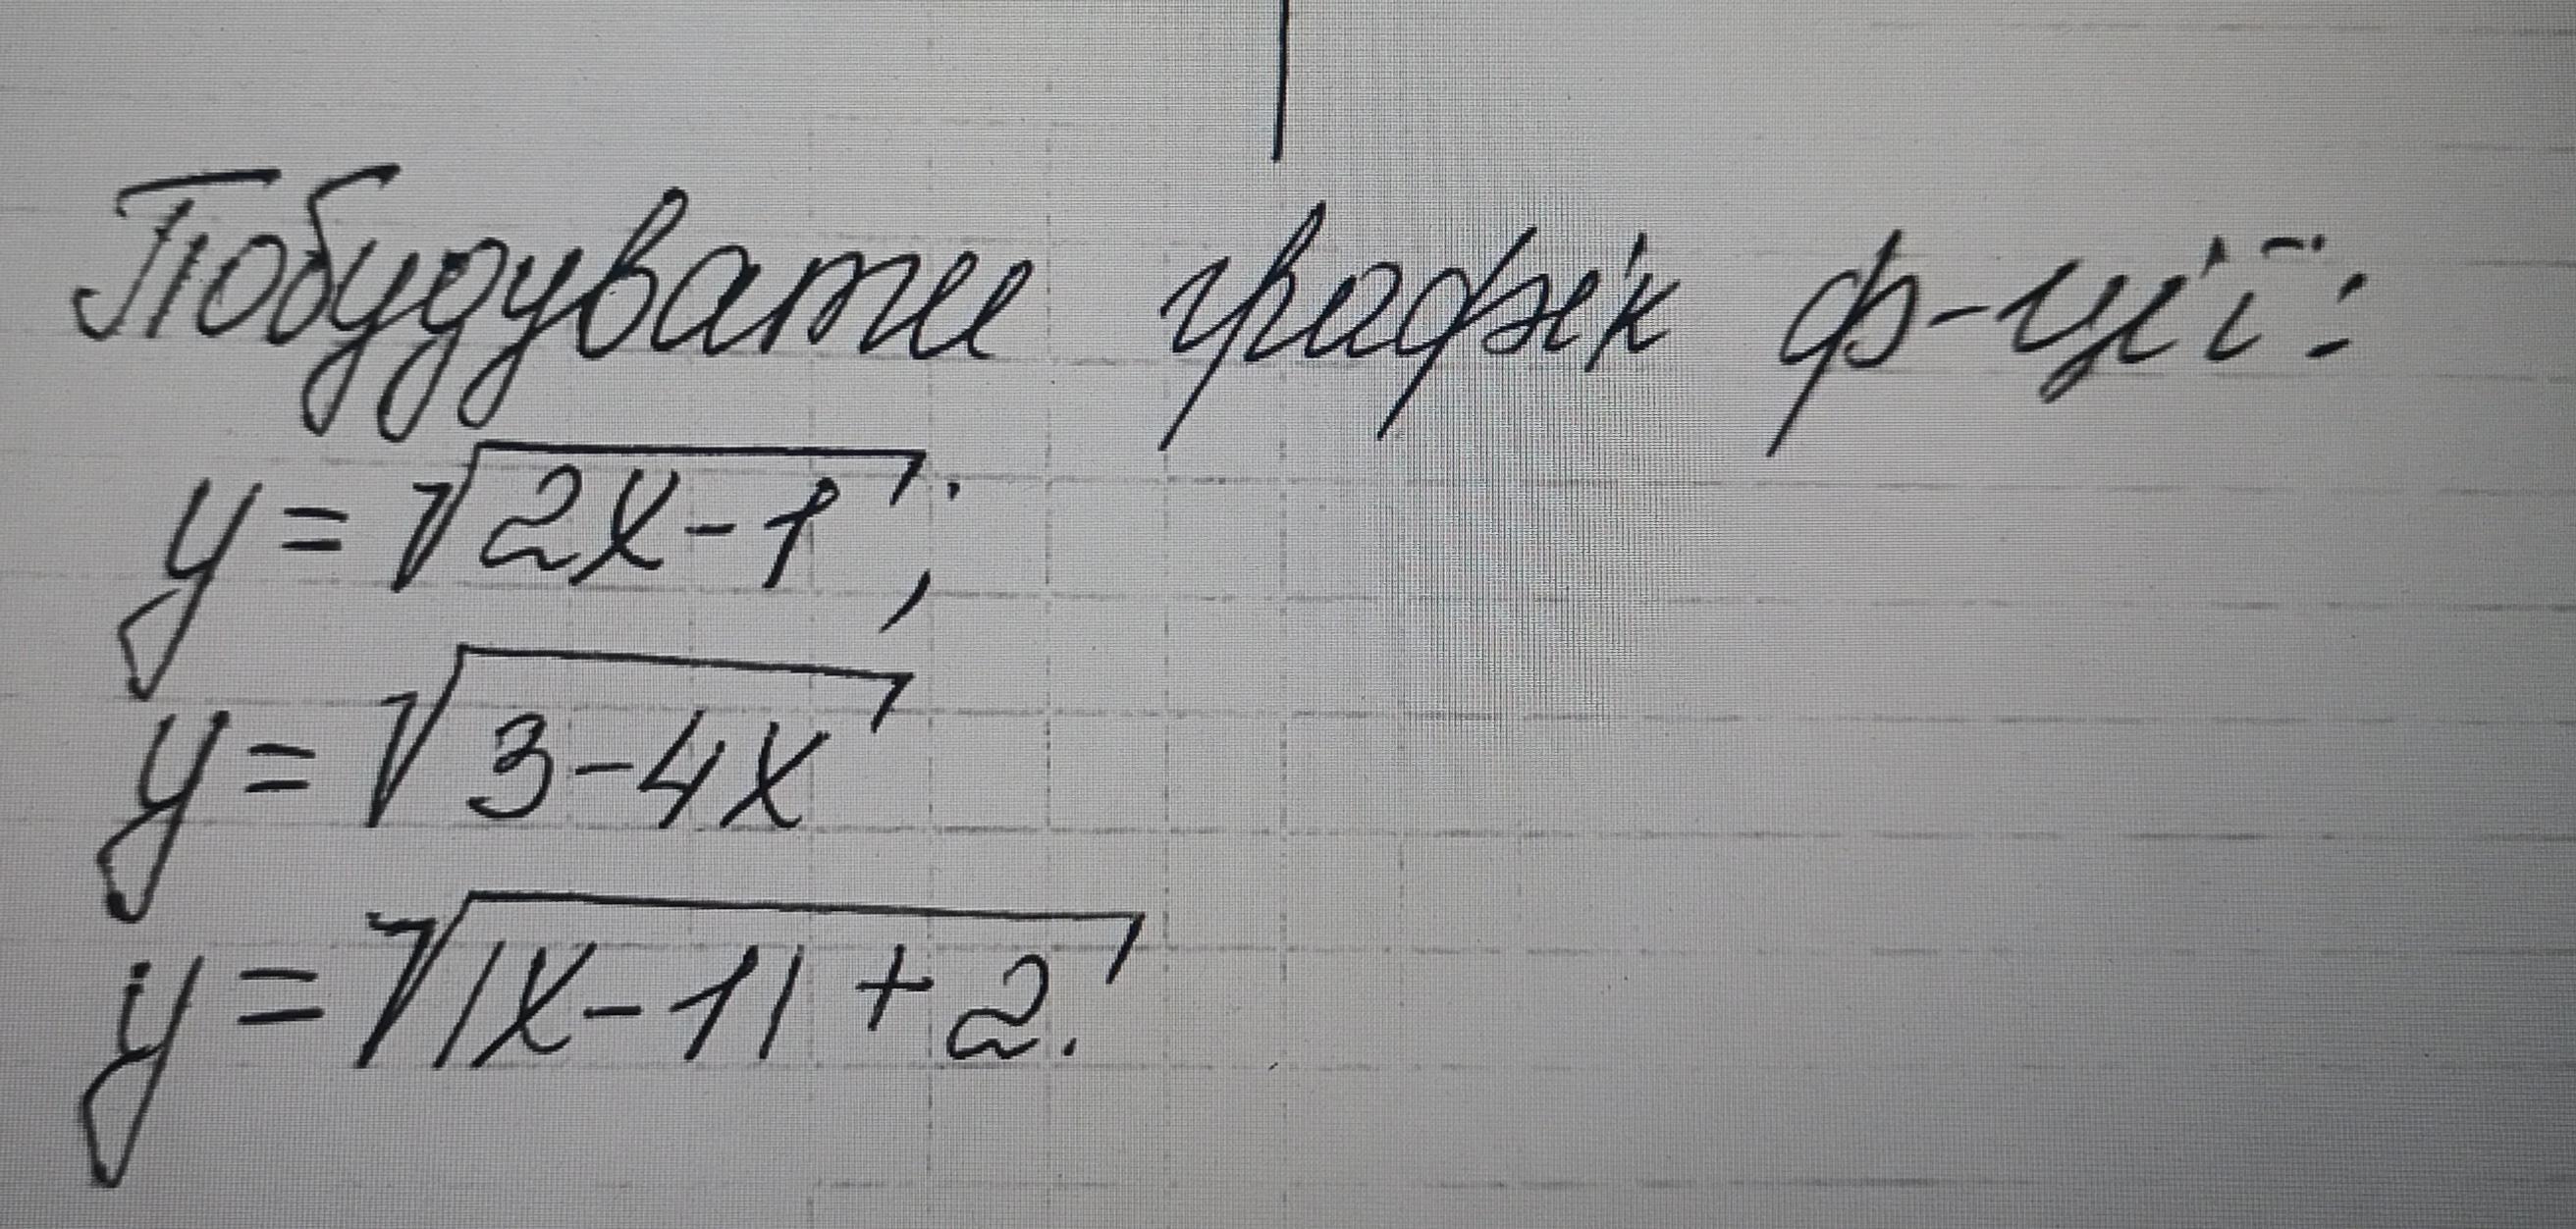 Побудувати графік ф-ції:
y = √2x-1;
y = √3-4x
y = √|x-1|+2.